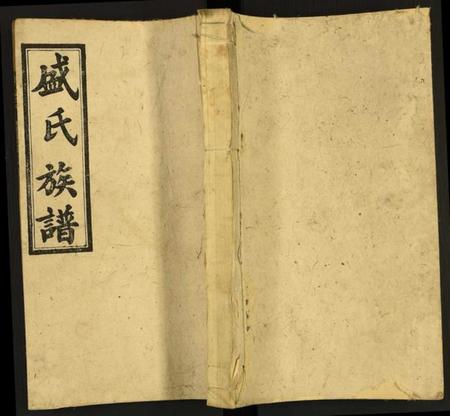 盛氏族譜